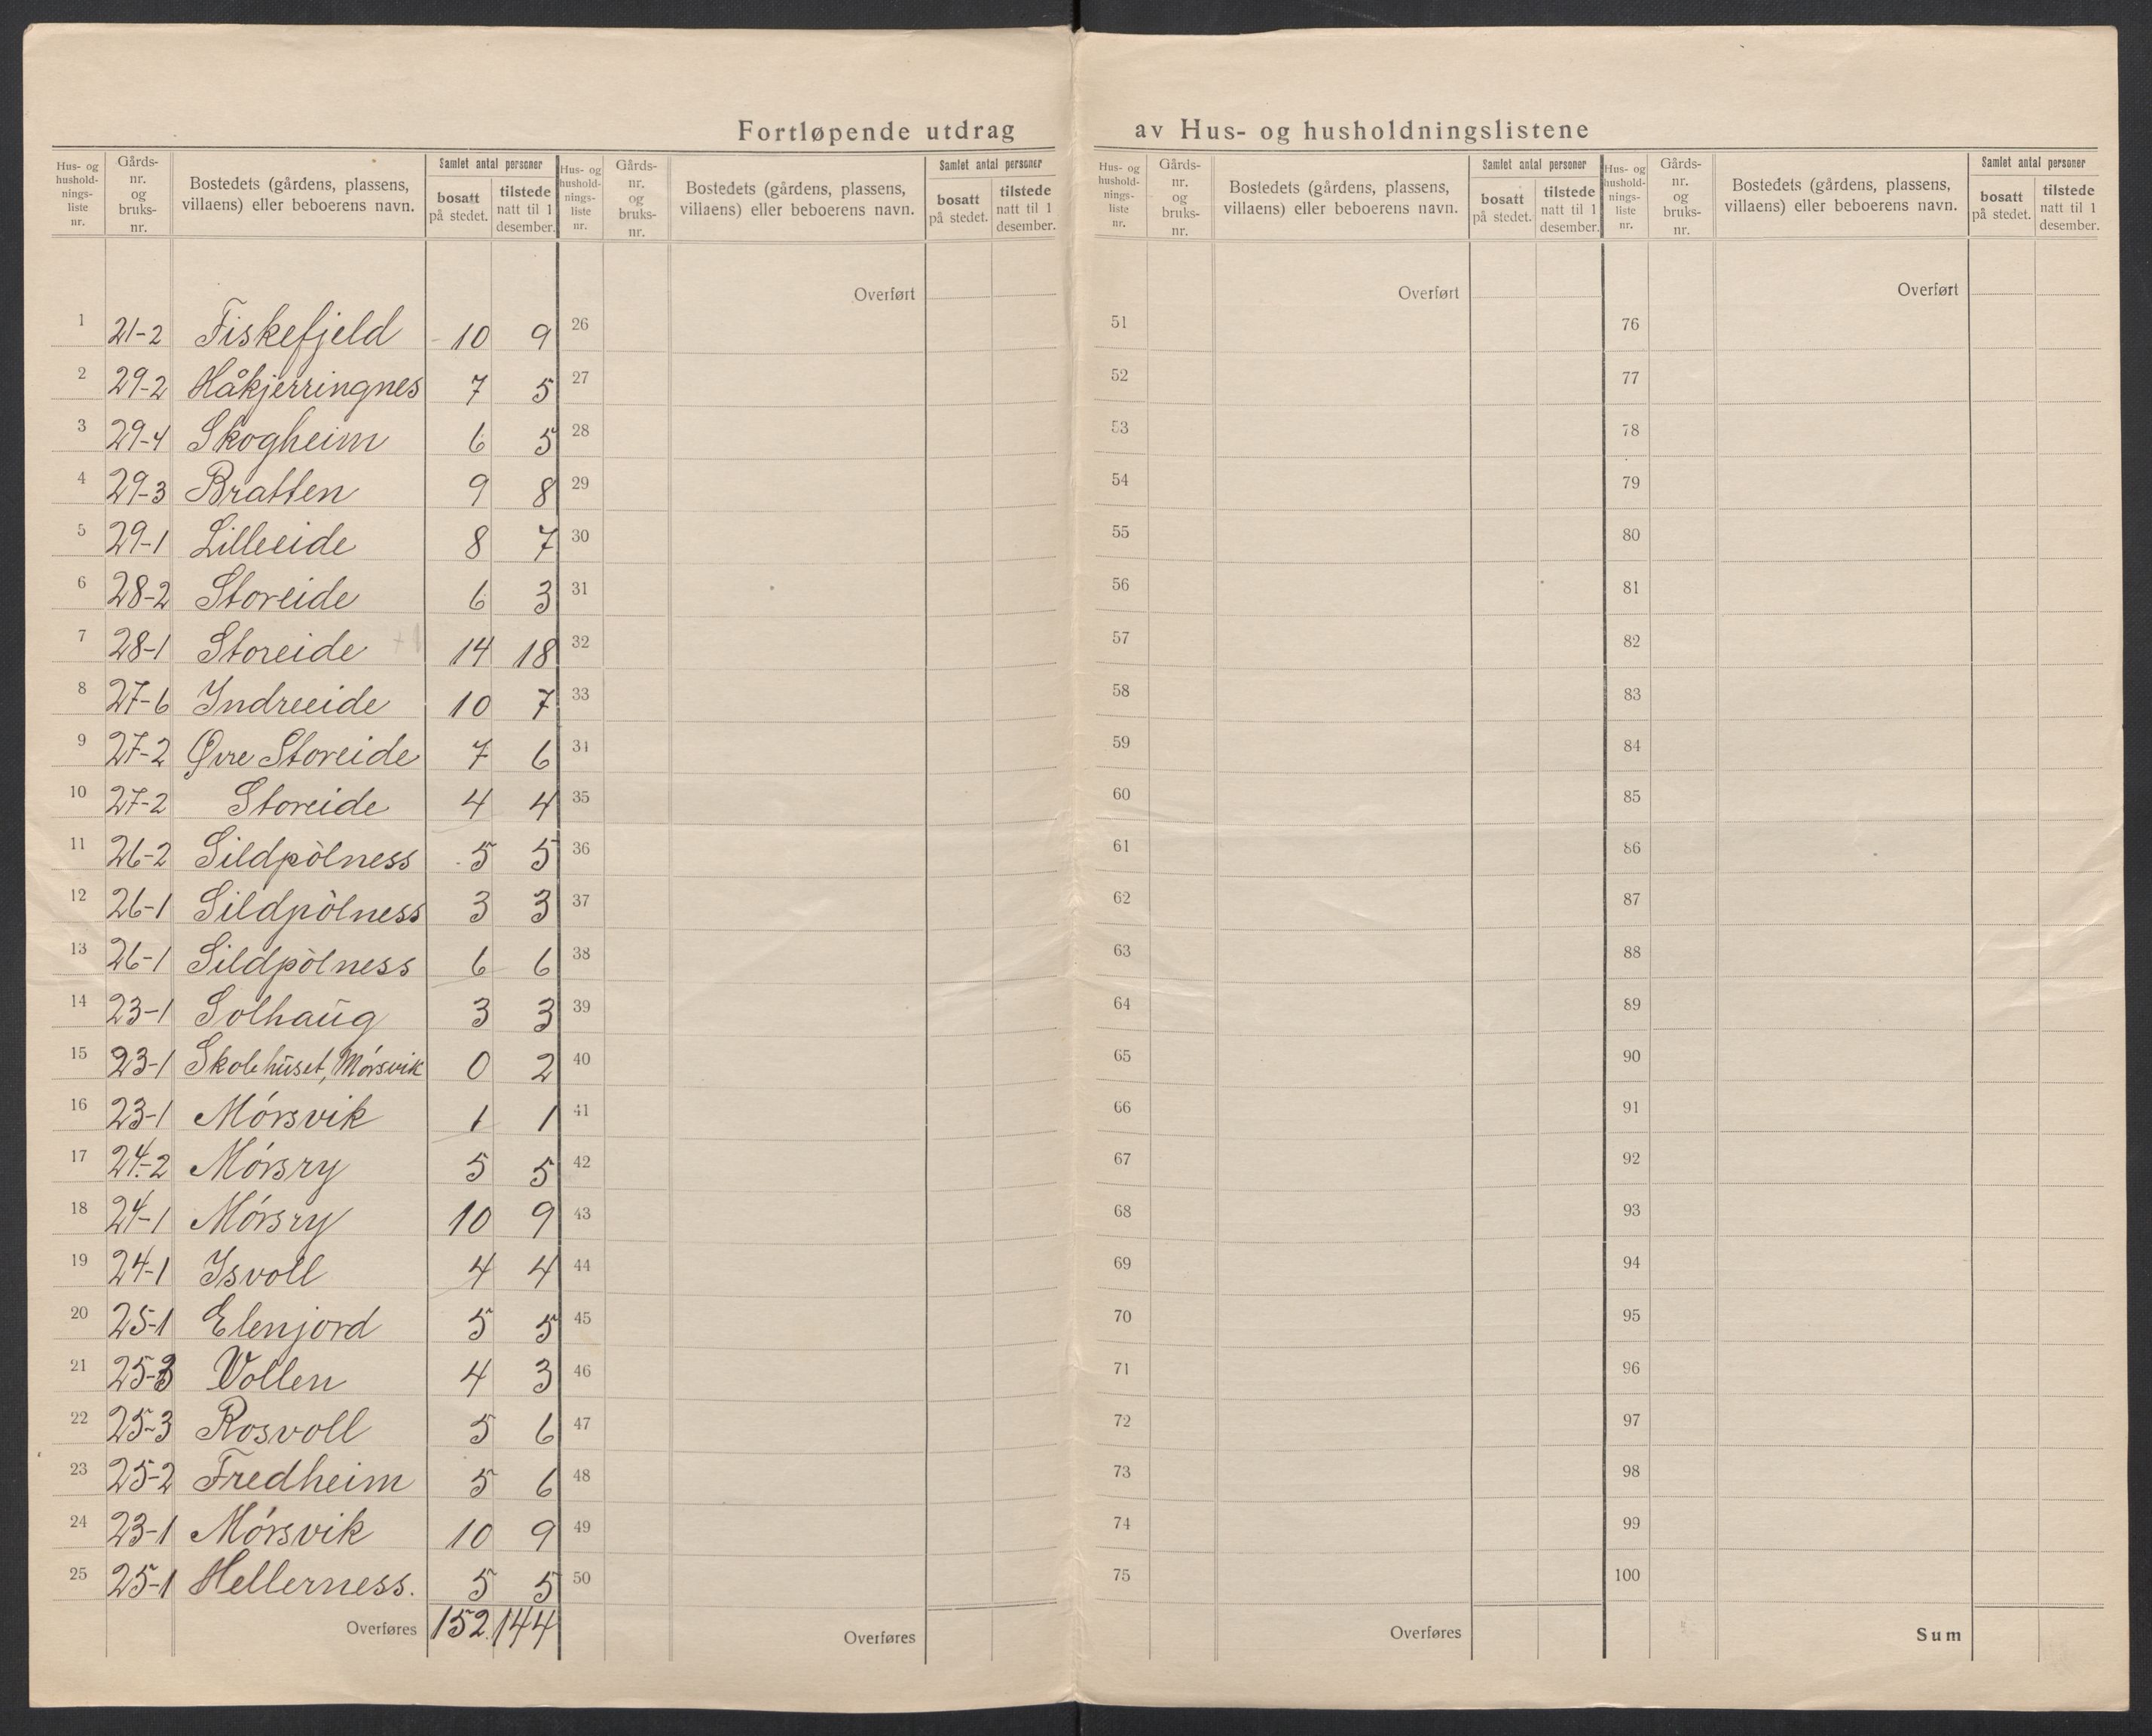 Fortløpende utdrag av Hus- og husholdningslistene
Hus- og hushold-nings-liste nr. Gårds-nr. og bruks-nr. Bostedets (gårdens, plassens, villaens) eller beboerens navn. Samlet antal personer bosatt på stedet. tilstede natt til 1 desember.
Hus- og hushold-nings-liste nr. Gårds-nr. og bruks-nr. Bostedets (gårdens, plassens, villaens) eller beboerens navn. Samlet antal personer bosatt på stedet. tilstede natt til 1 desember.
Hus- og hushold-nings-liste nr. Gårds-nr. og bruks-nr. Bostedets (gårdens, plassens, villaens) eller beboerens navn. Samlet antal personer bosatt på stedet. tilstede natt til 1 desember.
Hus- og hushold-nings-liste nr. Gårds-nr. og bruks-nr. Bostedets (gårdens, plassens, villaens) eller beboerens navn. Samlet antal personer bosatt på stedet. tilstede natt til 1 desember.
Overført Overført Overført
1 21-2 Fiskefjeld 10 9 26 51 76
2 29-2 Håkjerringnes 7 5 27 52 77
3 29-4 Skogheim 6 5 28 53 78
4 29-3 Bratten 9 8 29 54 79
5 29-1 Lilleeide 8 7 30 55 80
6 28-2 Storeide 6 3 31 56 81
7 28-1 Storeide 14 18 32 57 82
8 27-6 Indreeide 10 7 33 58 83
9 27-2 Øvre Storeide 7 6 34 59 84
10 27-2 Storeide 4 4 35 60 85
11 26-2 Sildpòlness 5 5 36 61 86
12 26-1 Sildpòlness 3 3 37 62 87
13 26-1 Sildpòlness 6 6 38 63 88
14 23-1 Solhaug 3 3 39 64 89
15 23-1 Skolehuset, Mórsvik 0 2 40 65 90
16 23-1 Mórsvik 1 1 41 66 91
17 24-2 Mórsry 5 5 42 67 92
18 24-1 Mórsry 10 9 43 68 93
19 24-1 Isvoll 4 4 44 69 94
20 25-1 Elenjord 5 5 45 70 95
21 25-3 Vollen 4 3 46 71 96
22 25-3 Rosvoll 5 6 47 72 97
23 25-2 Fredheim 5 6 48 73 98
24 23-1 Mórsvik 10 9 49 74 99
25 25-1 Hellerness. 5 5 50 75 100
Overføres 152. 144 Overføres Overføres Sum